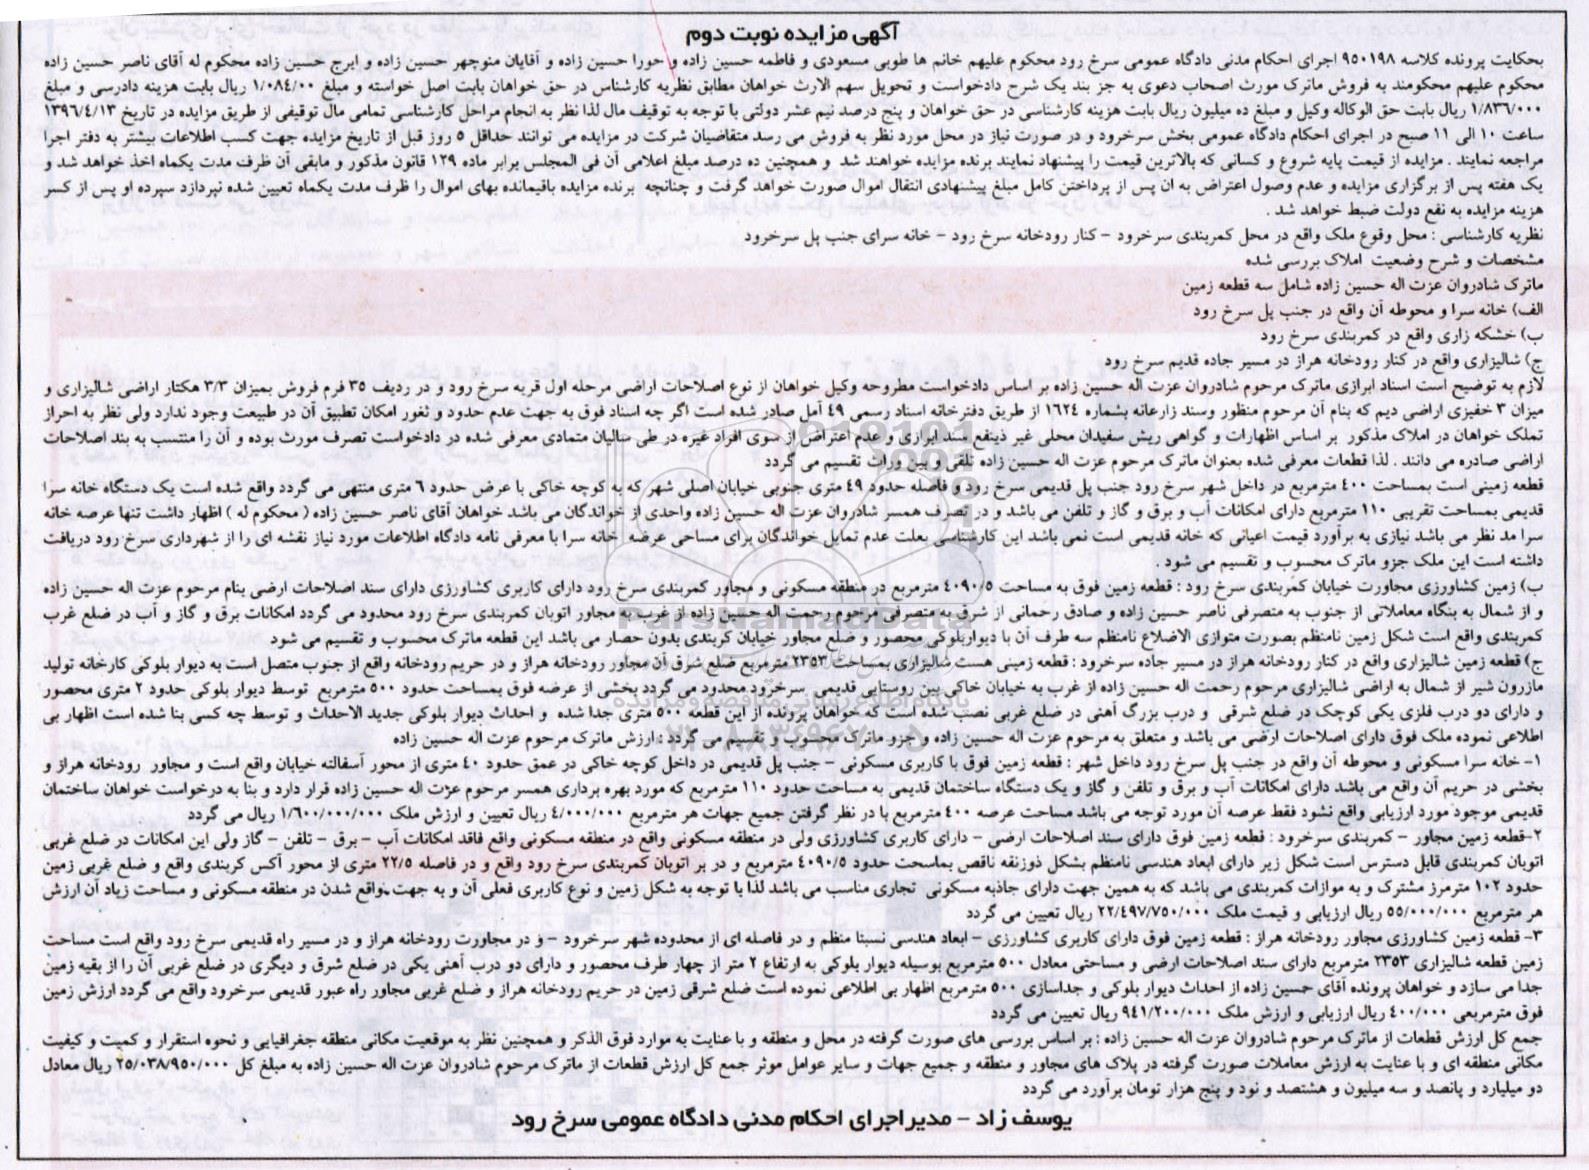 آگهی مزایده نوبت دوم
بحکایت پرونده کلاسه ۹۵۰۱۹۸ اجرای احکام مدنی دادگاه عمومی سرخ رود محکوم علیهم خانم ها طوبی مسعودی و فاطمه حسین زاده و حورا حسین زاده و آقایان منوچهر حسین زاده و ایرج حسین زاده محکوم له آقای ناصر حسین زاده
محکوم علیهم محکومند به فروش ماترک مورث اصحاب دعوی به جز بند یک شرح دادخواست و تحویل سهم الارث خواهان مطابق نظریه کارشناس در حق خواهان بابت اصل خواسته و مبلغ ۱/۰۸۴/۰۰ ریال بابت هزینه دادرسی و مبلغ
۱/۸۳۶/۰۰۰ ریال بابت حق الوکاله وکیل و مبلغ ده میلیون ریال بابت هزینه کارشناسی در حق خواهان و پنج درصد نیم عشر دولتی با توجه به توقیف مال لذا نظر به انجام مراحل کارشناسی تمامی مال توقیفی از طریق مزایده در تاریخ ۱۳۹۶/۴/۱۳
ساعت ۱۰ الی ۱۱ صبح در اجرای احکام دادگاه عمومی بخش سرخرود و در صورت نیاز در محل مورد نظر به فروش می رسد متقاضیان شرکت در مزایده می توانند حداقل ۵ روز قبل از تاریخ مزایده جهت کسب اطلاعات بیشتر به دفتر اجرا
مراجعه نمایند . مزایده از قیمت پایه شروع و کسانی که بالاترین قیمت را پیشنهاد نمایند برنده مزایده خواهند شد و همچنین ده درصد مبلغ اعلامی آن فی المجلس برابر ماده ۱۲۹ قانون مذکور و مابقی آن ظرف مدت یکماه اخذ خواهد شد و
یک هفته پس از برگزاری مزایده و عدم وصول اعتراض به ان پس از پرداختن کامل مبلغ پیشنهادی انتقال اموال صورت خواهد گرفت و چنانچه برنده مزایده باقیمانده بهای اموال را ظرف مدت یکماه تعیین شده نپردازد سپرده او پس از کسر
هزینه مزایده به نفع دولت ضبط خواهد شد .
نظریه کارشناسی : محل وقوع ملک واقع در محل کمربندی سرخرود – کنار رودخانه سرخ رود – خانه سرای جنب پل سرخرود
مشخصات و شرح وضعیت املاک بررسی شده
ماترک شادروان عزت اله حسین زاده شامل سه قطعه زمین
الف) خانه سرا و محوطه آن واقع در جنب پل سرخ رود
ب) خشکه زاری واقع در کمربندی سرخ رود
ج) شالیزاری واقع در کنار رودخانه هراز در مسیر جاده قدیم سرخ رود
لازم به توضیح است اسناد ابرازی ماترک مرحوم شادروان عزت اله حسین زاده بر اساس دادخواست مطروحه وکیل خواهان از نوع اصلاحات اراضی مرحله اول قریه سرخ رود و در ردیف ۳۵ فرم فروش بمیزان ۳/۳ هکتار اراضی شالیزاری و
میزان ۳ خفیزی اراضی دیم که بنام آن مرحوم منظور وسند زارعانه بشماره ۱۶۲۴ از طریق دفترخانه اسناد رسمی ۴۹ آمل صادر شده است اگر چه اسناد فوق به جهت عدم حدود و ثغور امکان تطبیق آن در طبیعت وجود ندارد ولی نظر به احراز
تملک خواهان در املاک مذکور بر اساس اظهارات و گواهی ریش سفیدان محلی غیر ذینفع سند ابرازی و عدم اعتراض از سوی افراد غیره در طی سالیان متمادی معرفی شده در دادخواست تصرف مورث بوده و آن را منتسب به بند اصلاحات
اراضی صادره می دانند . لذا قطعات معرفی شده بعنوان ماترک مرحوم عزت اله حسین زاده تلقی و بین وراث تقسیم می گردد
قطعه زمینی است بمساحت ۴۰۰ مترمربع در داخل شهر سرخ رود جنب پل قدیمی سرخ رود و فاصله حدود ۴۹ متری جنوبی خیابان اصلی شهر که به کوچه خاکی با عرض حدود ۶ متری منتهی می گردد واقع شده است یک دستگاه خانه سرا
قدیمی بمساحت تقریبی ۱۱۰ مترمربع دارای امکانات آب و برق و گاز و تلفن می باشد و در تصرف همسر شادروان عزت اله حسین زاده واحدی از خواندگان می باشد خواهان آقای ناصر حسین زاده ( محکوم له ) اظهار داشت تنها عرصه خانه
سرا مد نظر می باشد نیازی به برآورد قیمت اعیانی که خانه قدیمی است نمی باشد این کارشناسی بعلت عدم تمایل خواندگان برای مساحی عرصه خانه سرا با معرفی نامه دادگاه اطلاعات مورد نیاز نقشه ای را از شهرداری سرخ رود دریافت
داشته است این ملک جزو ماترک محسوب و تقسیم می شود .
ب) زمین کشاورزی مجاورت خیابان کمربندی سرخ رود : قطعه زمین فوق به مساحت ۴۰۹۰/۵ مترمربع در منطقه مسکونی و مجاور کمربندی سرخ رود دارای کاربری کشاورزی دارای سند اصلاحات ارضی بنام مرحوم عزت اله حسین زاده
و از شمال به بنگاه معاملاتی از جنوب به متصرفی ناصر حسین زاده و صادق رحمانی از شرق به متصرفی مرحوم رحمت اله حسین زاده از غرب به مجاور اتوبان کمربندی سرخ رود محدود می گردد امکانات برق و گاز و آب در ضلع غرب
کمربندی واقع است شکل زمین نامنظم بصورت متوازی الاضلاع نامنظم سه طرف آن با دیواربلوکی محصور و ضلع مجاور خیابان کربندی بدون حصار می باشد این قطعه ماترک محسوب و تقسیم می شود
ج) قطعه زمین شالیزاری واقع در کنار رودخانه هراز در مسیر جاده سرخرود : قطعه زمینی هست شالیزاری بمساحت ۲۳۵۳ مترمربع ضلع شرق آن مجاور رودخانه هراز و در حریم رودخانه واقع از جنوب متصل است به دیوار بلوکی کارخانه تولید
مازرون شیر از شمال به اراضی شالیزاری مرحوم رحمت اله حسین زاده از غرب به خیابان خاکی بین روستایی قدیمی سرخرود محدود می گردد بخشی از عرضه فوق بمساحت حدود ۵۰۰ مترمربع توسط دیوار بلوکی حدود ۲ متری محصور
و دارای دو درب فلزی یکی کوچک در ضلع شرقی و درب بزرگ آهنی در ضلع غربی نصب شده است که خواهان پرونده از این قطعه ۵۰۰ متری جدا شده و احداث دیوار بلوکی جدید الاحداث و توسط چه کسی بنا شده است اظهار بی
اطلاعی نموده ملک فوق دارای اصلاحات ارضی می باشد و متعلق به مرحوم عزت اله حسین زاده و جزو ماترک محسوب و تقسیم می گردد .ارزش ماترک مرحوم عزت اله حسین زاده
۱- خانه سرا مسکونی و محوطه آن واقع در جنب پل سرخ رود داخل شهر : قطعه زمین فوق با کاربری مسکونی – جنب پل قدیمی در داخل کوچه خاکی در عمق حدود ۴۰ متری از محور آسفالته خیابان واقع است و مجاور رودخانه هراز و
بخشی در حریم آن واقع می باشد دارای امکانات آب و برق و تلفن و گاز و یک دستگاه ساختمان قدیمی به مساحت حدود ۱۱۰ مترمربع که مورد بهره برداری همسر مرحوم عزت اله حسین زاده قرار دارد و بنا به درخواست خواهان ساختمان
قدیمی موجود مورد ارزیابی واقع نشود فقط عرصه آن مورد توجه می باشد مساحت عرصه ۴۰۰ مترمربع با در نظر گرفتن جمیع جهات هر مترمربع ۴/۰۰۰/۰۰۰ ریال تعیین و ارزش ملک ۱/۶۰۰/۰۰۰/۰۰۰ ریال می گردد
۲-قطعه زمین مجاور – کمربندی سرخرود : قطعه زمین فوق دارای سند اصلاحات ارضی – دارای کاربری کشاورزی ولی در منطقه مسکونی واقع در منطقه مسکونی واقع فاقد امکانات آب – برق – تلفن – گاز ولی این امکانات در ضلع غربی
اتوبان کمربندی قابل دسترس است شکل زیر دارای ابعاد هندسی نامنظم بشکل ذوزنقه ناقص بماسحت حدود ۴۰۹۰/۵ مترمربع و در بر اتوبان کمربندی سرخ رود واقع و در فاصله ۲۲/۵ متری از محور آکس کربندی واقع و ضلع غربی زمین
حدود ۱۰۲ مترمرز مشترک و به موازات کمربندی می باشد که به همین جهت دارای جاذبه مسکونی تجاری مناسب می باشد لذا با توجه به شکل زمین و نوع کاربری فعلی آن و به جهت واقع شدن در منطقه مسکونی و مساحت زیاد آن ارزش
هر مترمربع ۵۵/۰۰۰/۰۰۰ ریال ارزیابی و قیمت ملک ۲۲/۴۹۷/۷۵۰/۰۰۰ ریال تعیین می گردد
۳- قطعه زمین کشاورزی مجاور رودخانه هراز : قطعه زمین فوق دارای کاربری کشاورزی – ابعاد هندسی نسبتا منظم و در فاصله ای از محدوده شهر سرخرود – و در مجاورت رودخانه هراز و در مسیر راه قدیمی سرخ رود واقع است مساحت
زمین قطعه شالیزاری ۲۳۵۳ مترمربع دارای سند اصلاحات ارضی و مساحتی معادل ۵۰۰ مترمربع بوسیله دیوار بلوکی به ارتفاع ۲ متر از چهار طرف محصور و دارای دو درب آهنی یکی در ضلع شرق و دیگری در ضلع غربی آن را از بقیه زمین
جدا می سازد و خواهان پرونده آقای حسین زاده از احداث دیوار بلوکی و جداسازی ۵۰۰ مترمربع اظهار بی اطلاعی نموده است ضلع شرقی زمین در حریم رودخانه هراز و ضلع غربی مجاور راه عبور قدیمی سرخرود واقع می گردد ارزش زمین
فوق مترمربعی ۴۰۰/۰۰۰ ریال ارزیابی و ارزش ملک ۹۴۱/۲۰۰/۰۰۰ ریال تعیین می گردد
جمع کل ارزش قطعات از ماترک مرحوم شادروان عزت اله حسین زاده : بر اساس بررسی های صورت گرفته در محل و منطقه و با عنایت به موارد فوق الذکر و همچنین نظر به موقعیت مکانی منطقه جغرافیایی و نحوه استقرار و کمیت و کیفیت
مکانی منطقه ای و با عنایت به ارزش معاملات صورت گرفته در پلاک های مجاور و منطقه و جمیع جهات و سایر عوامل موثر جمع کل ارزش قطعات از ماترک مرحوم شادروان عزت اله حسین زاده به مبلغ کل ۲۵/۰۳۸/۹۵۰/۰۰۰ ریال معادل
دو میلیارد و پانصد و سه میلیون و هشتصد و نود و پنج هزار تومان برآورد می گردد
یوسف زاد – مدیراجرای احکام مدنی دادگاه عمومی سرخ رود
ParsNamadData
پایگاه اطلاع رسانی مناقصه و مزایده
۰۲۱-۸۸۳۴۹۶۷۰-۵